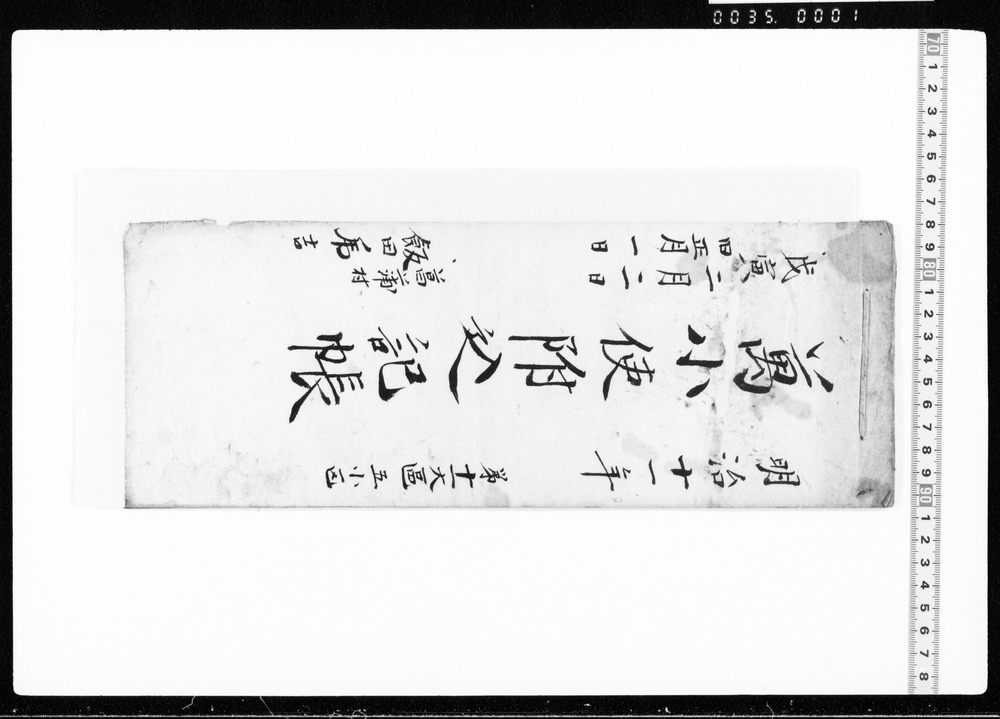 0035. 0001
明治十一年
第十一大區五小区
萬小使附込記帳
戊寅
二月二日
旧正月一日
菖蒲村
飯田虎吉
70 1 2 3 4 5 6 7 8 9 80 1 2 3 4 5 6 7 8 9 90 1 2 3 4 5 6 7 8